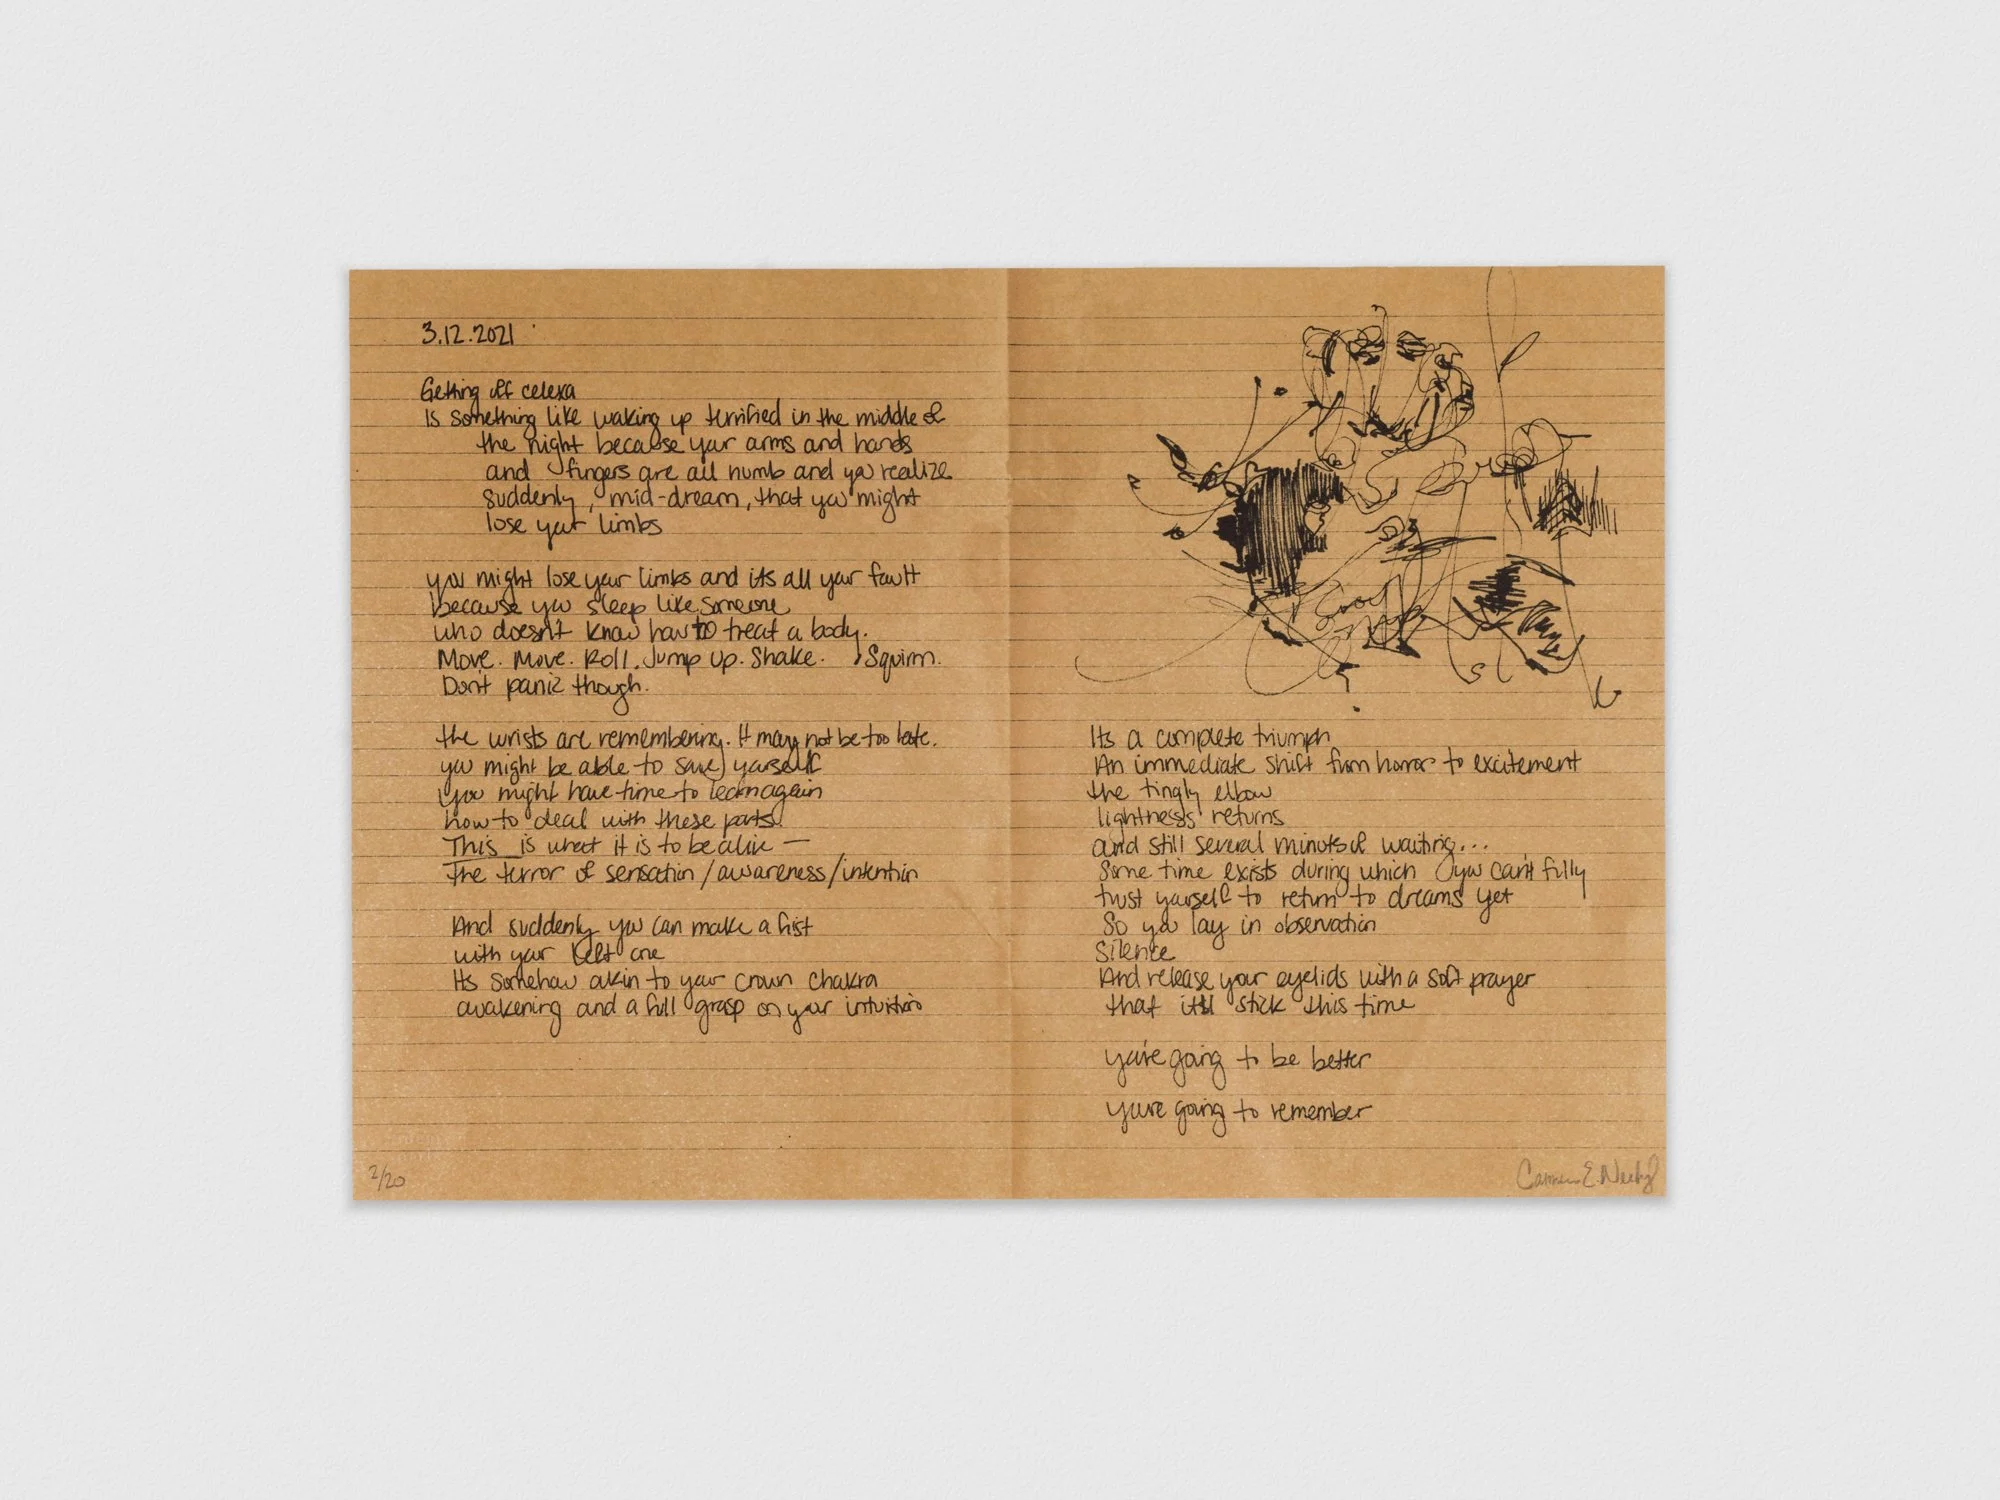 3.12.2021
Getting off celexa
is something like waking up terrified in the middle of
the night because your arms and hands
and fingers are all numb and you realize
suddenly, mid-dream, that you might
lose your limbs
you might lose your limbs and its all your fault
because you sleep like someone
who doesn't know how to treat a body.
Move. Move. Roll. Jump up. Shake. Squirm.
Don't panic though.
the wrists are remembering. It may not be too late.
you might be able to save yourself
you might have time to learn again
how to deal with these parts.
This is what it is to be alive —
The terror of sensation/awareness/intention
And suddenly you can make a fist
with your left one
Its somehow akin to your crown chakra
awakening and a full grasp on your intuition
Its a complete triumph
An immediate shift from horror to excitement
the tingly elbow
lightness returns
and still several minutes of waiting...
Some time exists during which you can't fully
trust yourself to return to dreams yet
So you lay in observation
Silence
And release your eyelids with a soft prayer
that it'll stick this time
you're going to be better
you're going to remember
2/20
Carmen E. Neely